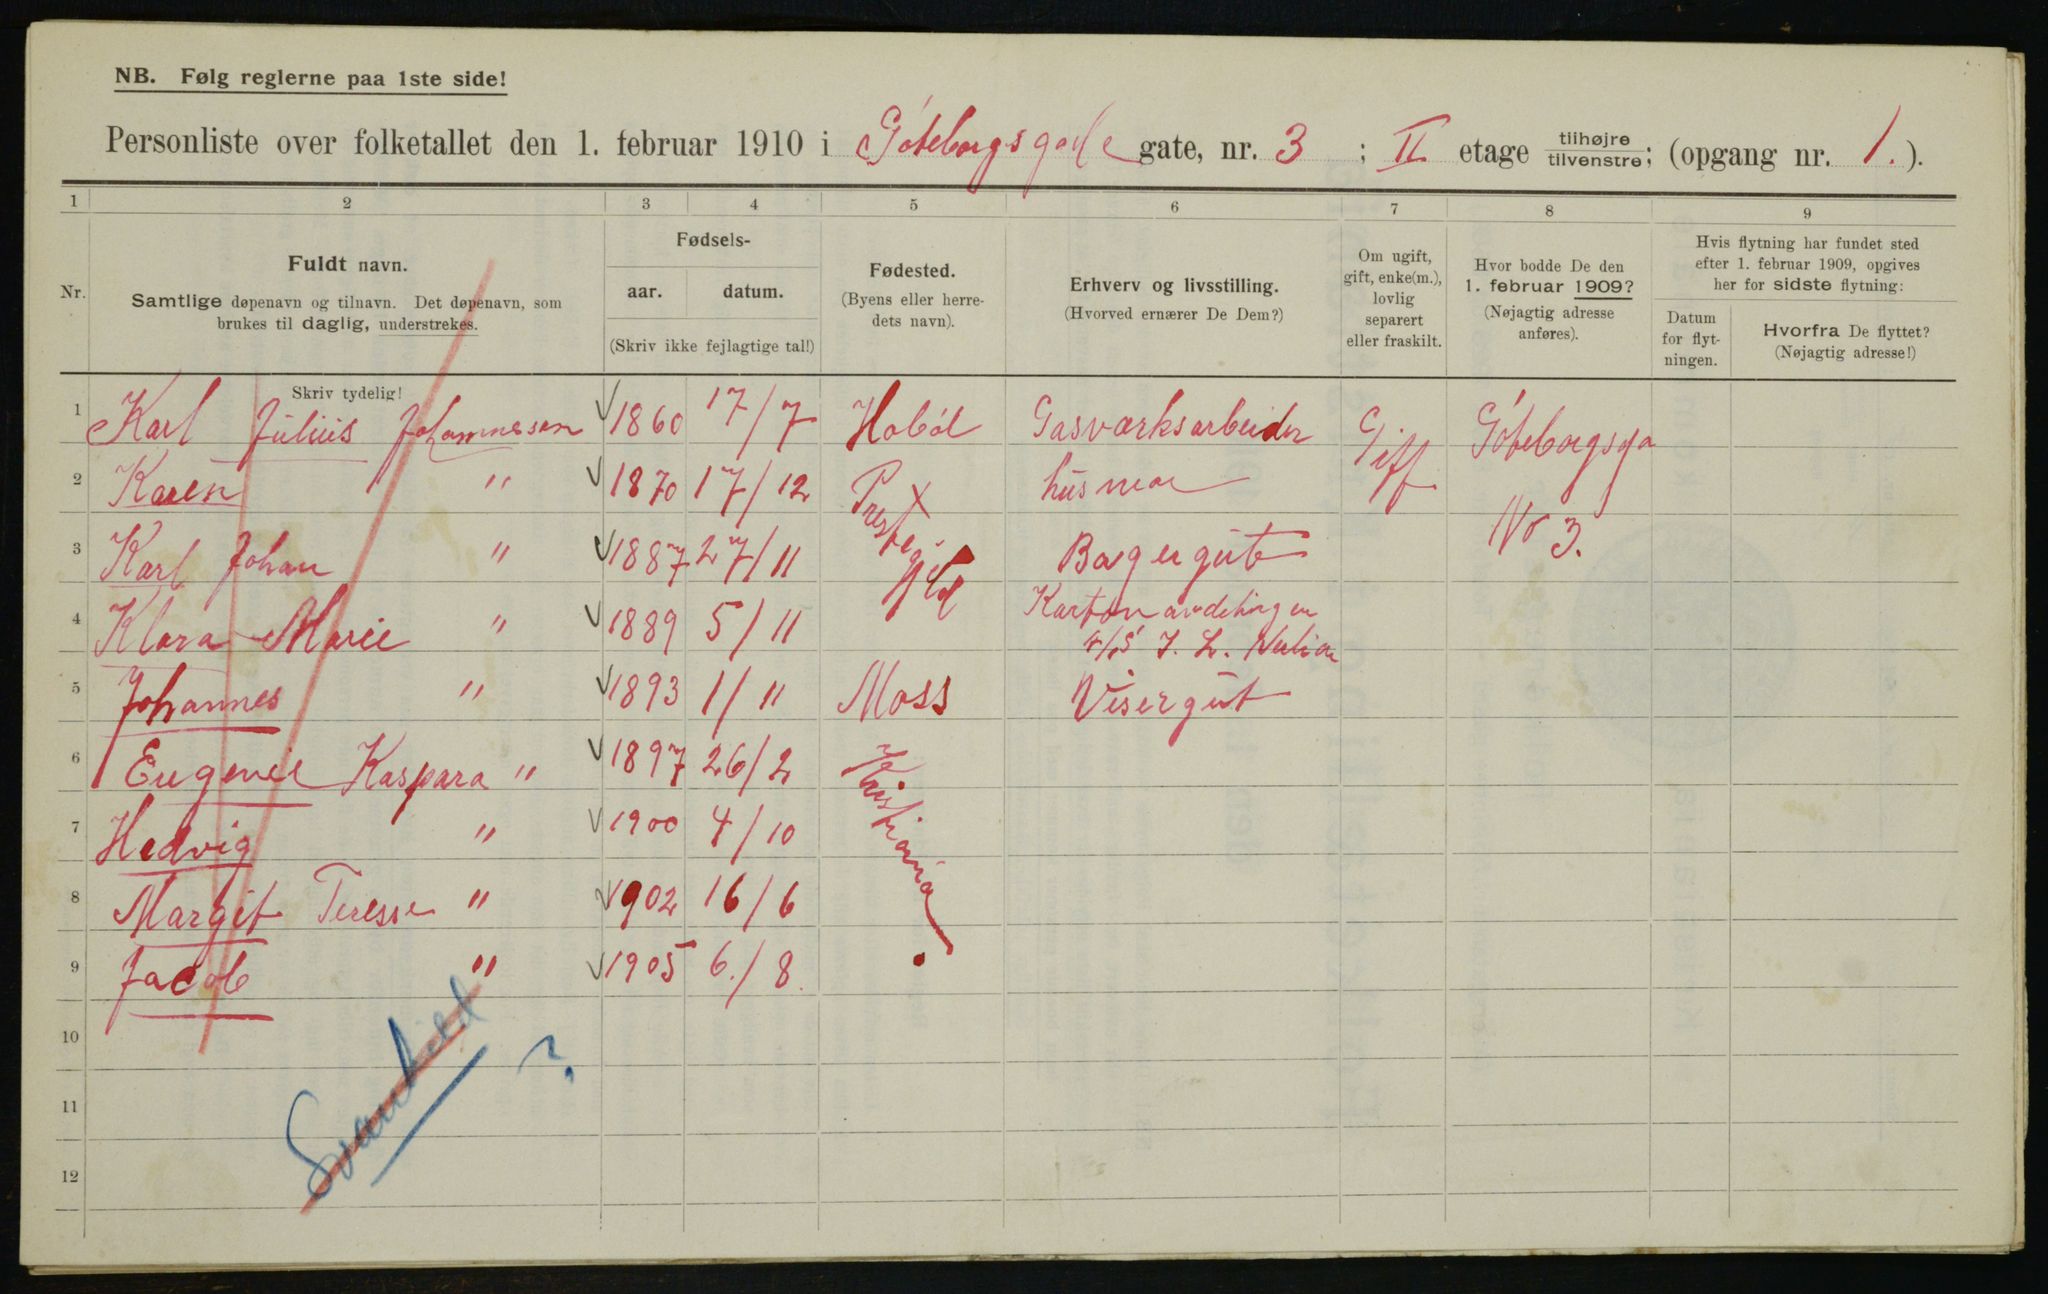 NB. Følg reglerne paa 1ste side!
Personliste over folketallet den 1. februar 1910 i Göteborgsgade gate, nr. 3 ; II etage tilhøjre tilvenstre; (opgang nr. 1. ).
1 2 3 4 5 6 7 8 9
Nr.
Fuldt navn.
Samtlige døpenavn og tilnavn. Det døpenavn, som
brukes til daglig, understrekes.
Skriv tydelig!
Fødsels-
aar. datum.
(Skriv ikke fejlagtige tal!)
Fødested.
(Byens eller herre-
dets navn).
Erhverv og livsstilling.
(Hvorved ernærer De Dem?)
Om ugift,
gift, enke(m.),
lovlig
separert
eller fraskilt.
Hvor bodde De den
1. februar 1909?
(Nøjagtig adresse
anføres).
Hvis flytning har fundet sted
efter 1. februar 1909, opgives
her for sidste flytning:
Datum
for flyt-
ningen.
Hvorfra De flyttet?
(Nøjagtig adresse!)
1 Karl Julius Johannesen 1860 17/7 Haböl Gasværksarbeider Gift Göteborgsga
2 Karen " 1870 17/12 Prestegjeld husmor No 3.
3 Karl Johan " 1887 27/11 Bagergut
4 Klara Marie " 1889 5/11 Karton avdelingen
J. L.
5 Johannes " 1893 1/11 Moss Visergut
6 Eugenie Kaspara " 1897 26/2 Kristiania.
7 Hedvig " 1900 4/10
8 Margit Teresse " 1902 16/6
9 Jacob " 1905 6./8.
10
11
12
Svanhild ?